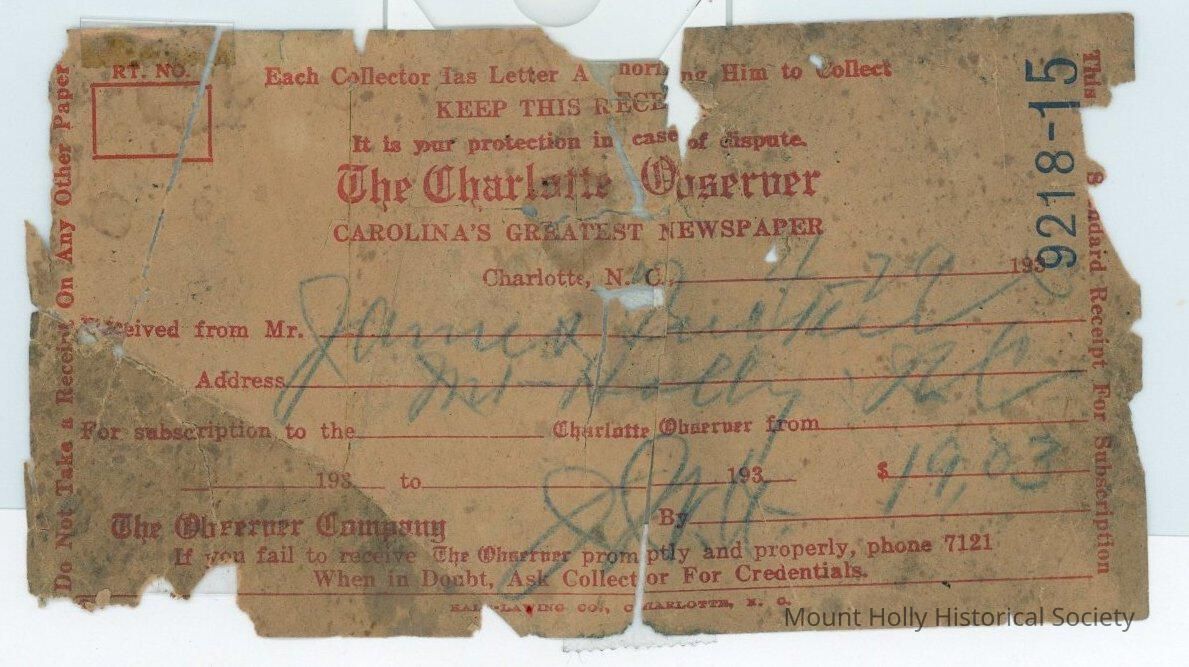 RT. NO.
Each Collector Has Letter A horizing Him to Collect
KEEP THIS RECE
It is your protection in case of dispute.
The Charlotte Observer
CAROLINA'S GREATEST NEWSPAPER
Charlotte, N. C., 193
Received from Mr. James
Address Mt Holly N C
For subscription to the Charlotte Observer from
193 to 193 $ 19,03
The Observer Company By
If you fail to receive The Observer promptly and properly, phone 7121
When in Doubt, Ask Collector For Credentials.
CO., CHARLOTTE, N. C.
Do Not Take a Receipt On Any Other Paper
This Standard Receipt For Subscription
9218-15
Mount Holly Historical Society